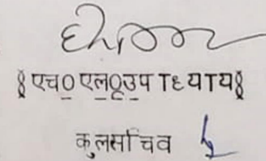 § एच० एल० उपाध्याय §
कुलसचिव